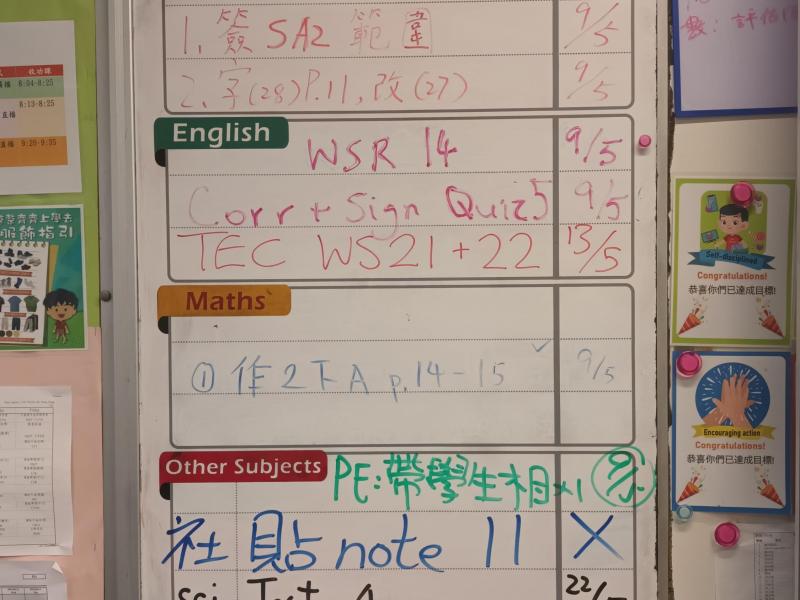 1. 簽 SA2 範圍 9/5
2. 字(28)P.11, 改(27) 9/5
English
WSR 14 9/5
Corr + Sign Quiz5 9/5
TEC WS21+22 13/5
Maths
① 作2下A p.14-15 ✓ 9/5
Other Subjects
PE:帶學生相x1
社 貼note 11 X
收功課
8:04-8:25
8:13-8:25
直播
9:20-9:35
齊齊上學去
服飾指引
Self-disciplined
Congratulations!
恭喜你們已達成目標!
Encouraging action
Congratulations!
恭喜你們已達成目標!